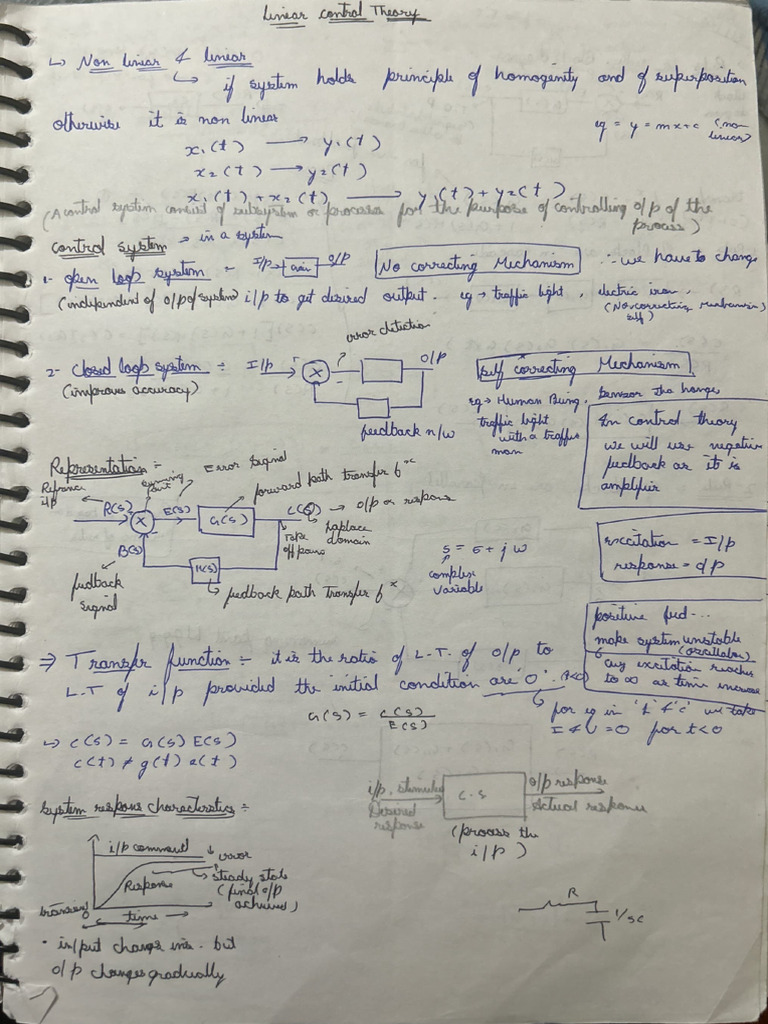 Linear control Theory
↳ Non linear & linear
↳ if system holds principle of homogenity and of superposition
otherwise it is non linear
eq = y = mx+c (non linear)
x₁(t) → y₁(t)
x₂(t) → y₂(t)
x₁(t) + x₂(t) → y₁(t) + y₂(t)
(A control system consist of subsystem or processes for the purpose of controlling o/p of the
process)
control system → in a system
1- open loop system :- I/p → G(s) O/P No correcting Mechanism ∴ we have to change
(independent of o/p of system) i/p to get desired output. eg → traffic light, electric iron,
(No correcting mechanism)
error detection
2- Closed loop system ÷ I/p + X ? - O/P self correcting Mechanism
(improves accuracy)
eg → Human Being,
traffic light
with a traffic
man
feedback n/w
In control theory
we will use negative
feedback as it is
amplifier
Representation :-
Refrance i/p
summing point
Error Signal
forward path transfer fⁿᶜ
R(s) X E(s) G(s) C(s) → o/p or respons
Laplace domain
Take off point
B(s)
feedback signal
H(s)
feedback path transfer fⁿᶜ
s = σ + jω
complex
variable
excitation = I/p
response = o/p
positive feed...
make system unstable
(oscillator)
any excitation reaches
to ∞ as time increase
⇒ Transfer function :- it is the ratio of L.T. of o/p to
L.T of i/p provided the initial condition are '0'. t<0
G(s) = C(s)/E(s)
for eg in 'L' & 'C' we take
I & V = 0 for t<0
↳ C(s) = G(s) E(s)
c(t) ≠ g(t) e(t)
i/p, stimulus
Desired
response
C.S
o/p response
Actual response
(process the
i/p)
System respons characterstics ÷
i/p command
error
Response
steady state
(final o/p
achieved)
time →
R
1/sc
• in/put change ins. but
o/p changes gradually